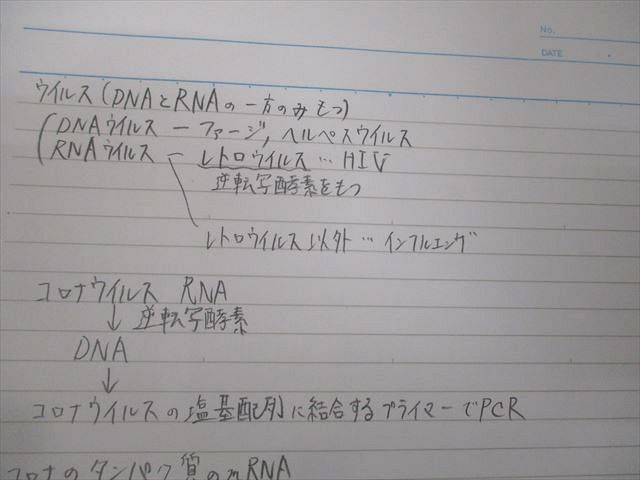 No.
DATE
ウイルス(DNAとRNAの一方のみもつ)
DNAウイルス ー ファージ, ヘルペスウイルス
RNAウイルス ー レトロウイルス … HIV
逆転写酵素をもつ
レトロウイルス以外 … インフルエンザ
コロナウイルス RNA
↓ 逆転写酵素
DNA
↓
コロナウイルスの塩基配列に結合するプライマーでPCR
コロナのタンパク質のmRNA